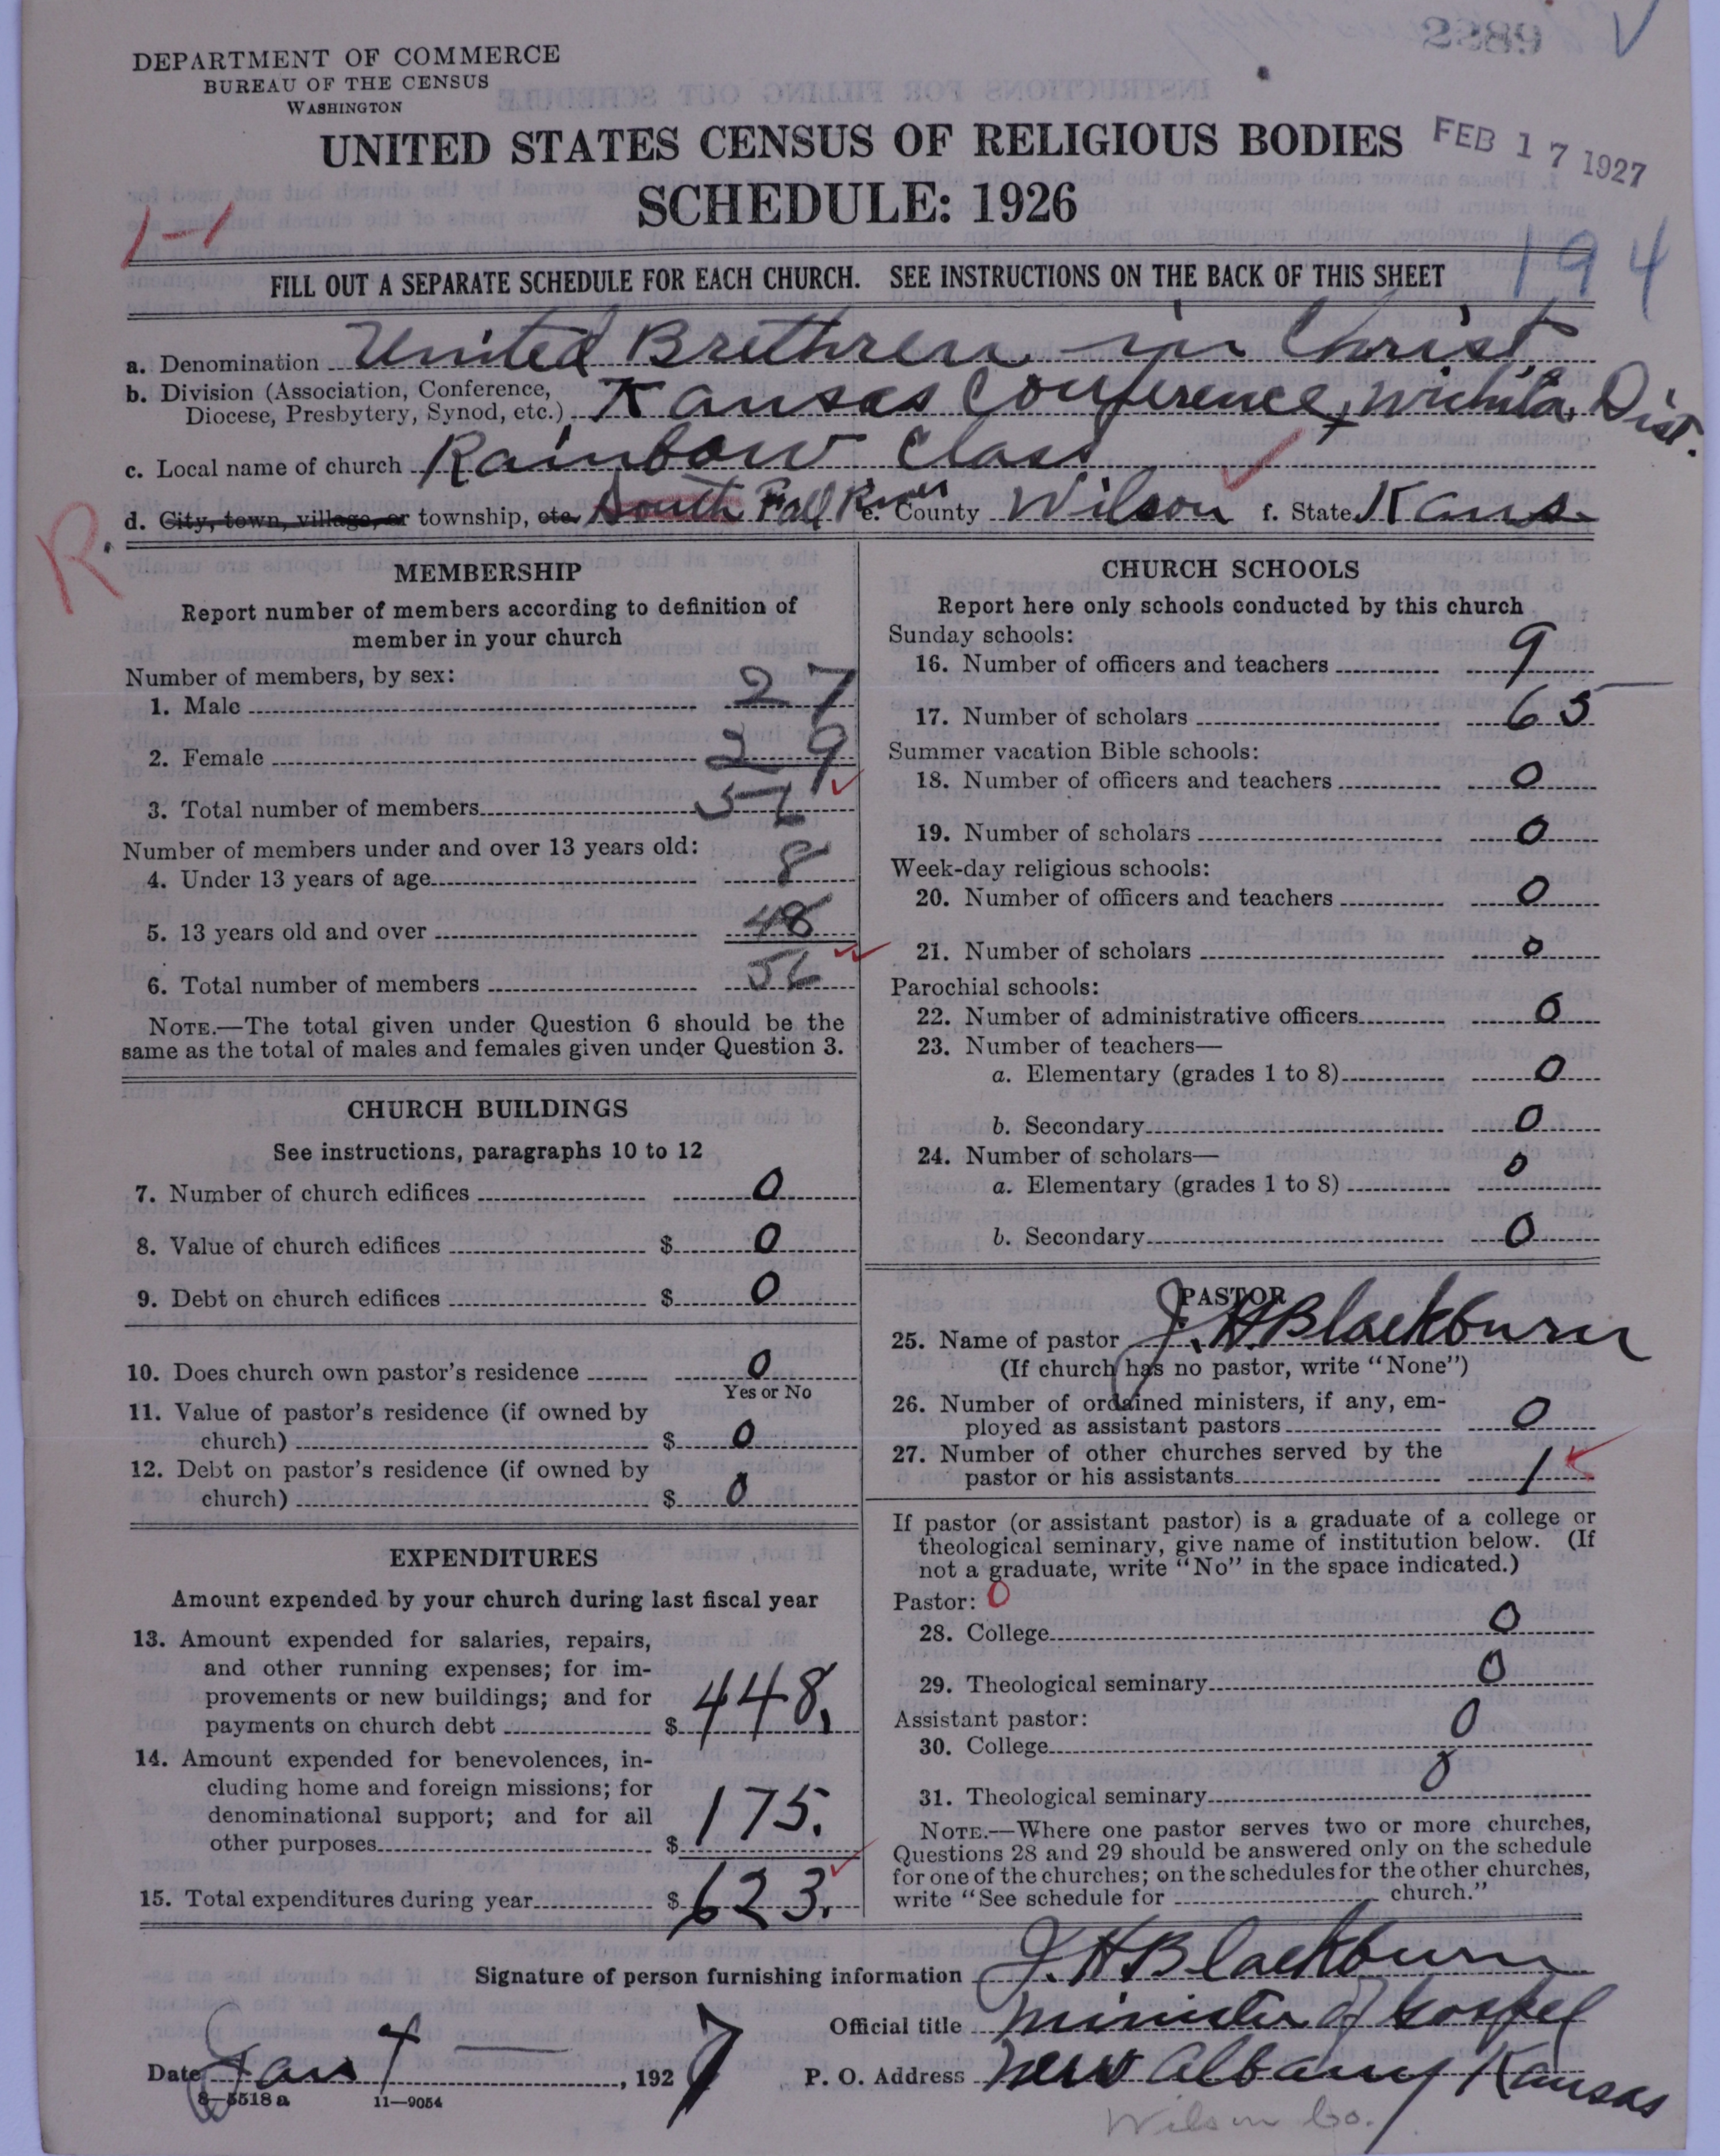 2889
DEPARTMENT OF COMMERCE
BUREAU OF THE CENSUS
WASHINGTON
UNITED STATES CENSUS OF RELIGIOUS BODIES
FEB 17 1927
SCHEDULE: 1926
1-1
194
FILL OUT A SEPARATE SCHEDULE FOR EACH CHURCH. SEE INSTRUCTIONS ON THE BACK OF THIS SHEET
a. Denomination United Brethren in Christ
b. Division (Association, Conference,
Diocese, Presbytery, Synod, etc.) Kansas Conference, Wichita Dist.
c. Local name of church Rainbow Class
d. City, town, village, or township, etc. South Fall River e. County Wilson f. State Kans.
R.
MEMBERSHIP
Report number of members according to definition of
member in your church
Number of members, by sex:
1. Male 27
2. Female 29
3. Total number of members 56
Number of members under and over 13 years old:
4. Under 13 years of age 8
5. 13 years old and over 48
6. Total number of members 56
NOTE.—The total given under Question 6 should be the
same as the total of males and females given under Question 3.
CHURCH BUILDINGS
See instructions, paragraphs 10 to 12
7. Number of church edifices 0
8. Value of church edifices $ 0
9. Debt on church edifices $ 0
10. Does church own pastor's residence 0
Yes or No
11. Value of pastor's residence (if owned by
church) $ 0
12. Debt on pastor's residence (if owned by
church) $ 0
EXPENDITURES
Amount expended by your church during last fiscal year
13. Amount expended for salaries, repairs,
and other running expenses; for im-
provements or new buildings; and for
payments on church debt $ 448.
14. Amount expended for benevolences, in-
cluding home and foreign missions; for
denominational support; and for all
other purposes $ 175.
15. Total expenditures during year $ 623.
CHURCH SCHOOLS
Report here only schools conducted by this church
Sunday schools:
16. Number of officers and teachers 9
17. Number of scholars 65
Summer vacation Bible schools:
18. Number of officers and teachers 0
19. Number of scholars 0
Week-day religious schools:
20. Number of officers and teachers 0
21. Number of scholars 0
Parochial schools:
22. Number of administrative officers 0
23. Number of teachers—
a. Elementary (grades 1 to 8) 0
b. Secondary 0
24. Number of scholars—
a. Elementary (grades 1 to 8) 0
b. Secondary 0
PASTOR
25. Name of pastor J. H Blackburn
(If church has no pastor, write "None")
26. Number of ordained ministers, if any, em-
ployed as assistant pastors 0
27. Number of other churches served by the
pastor or his assistants 1
If pastor (or assistant pastor) is a graduate of a college or
theological seminary, give name of institution below. (If
not a graduate, write "No" in the space indicated.)
Pastor: 0
28. College 0
29. Theological seminary 0
Assistant pastor:
30. College 0
31. Theological seminary 0
NOTE.—Where one pastor serves two or more churches,
Questions 28 and 29 should be answered only on the schedule
for one of the churches; on the schedules for the other churches,
write "See schedule for church."
Signature of person furnishing information J. H Blackburn
Official title minister of Gospel
Date Jan 4, 1927 P. O. Address New Albany Kansas
8—5518 a 11—9054
Wilson Co.